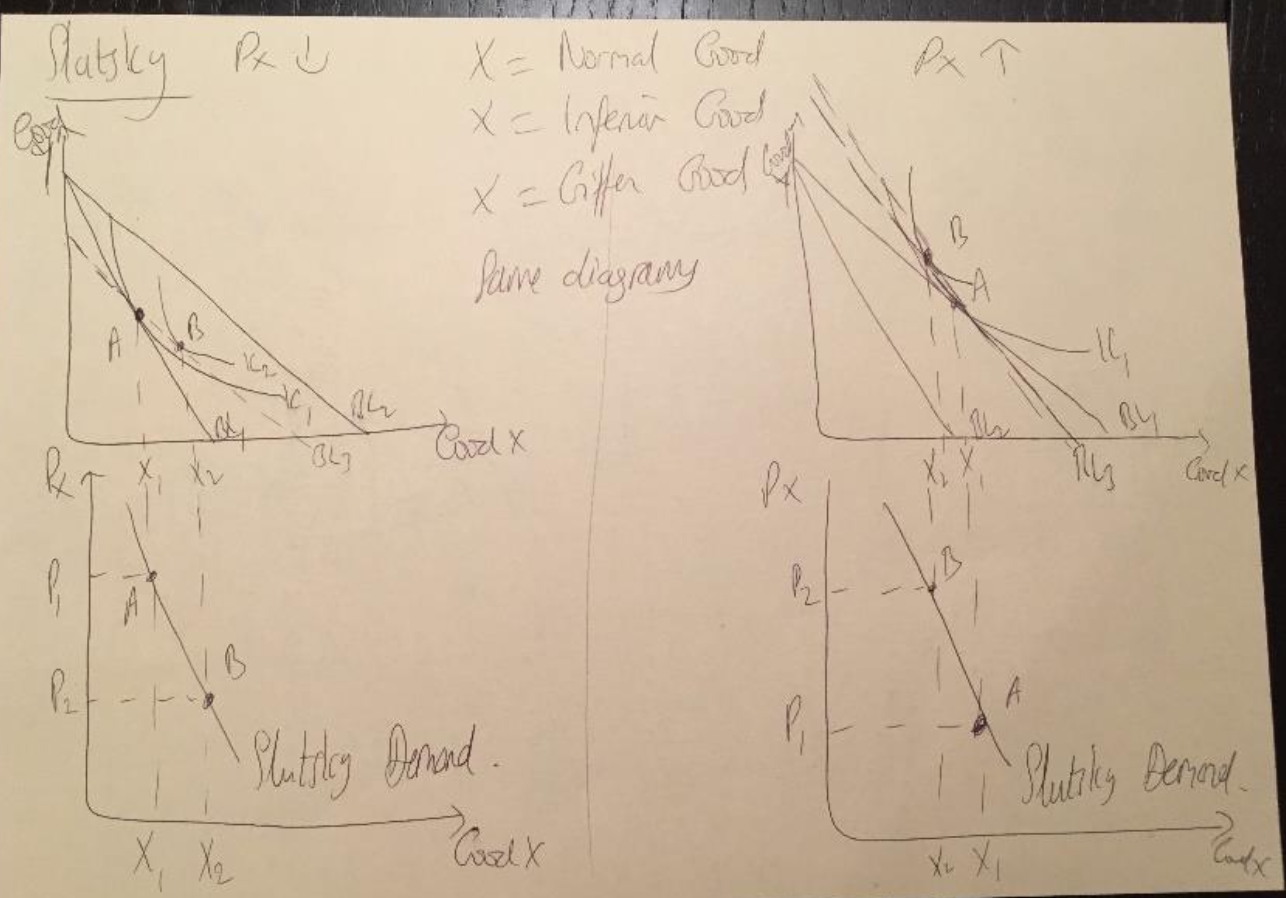 Slutsky Px ↓
X = Normal Good
X = Inferior Good
X = Giffen Good
Same diagrams
Px ↑
Good
Y
A
B
IC2
IC1
BL1
BL2
BL3
X1 X2
Good X
Px
P1
A
B
P2
Slutsky Demand.
X1 X2
Good X
Good
B
A
IC1
BL2
BL1
BL3
X2 X1
Good X
Px
P2
B
A
P1
Slutsky Demand.
X2 X1
Good X